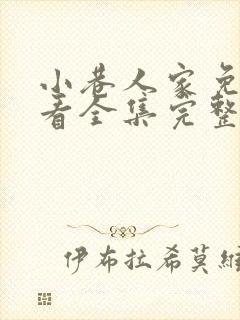 小巷人家免
看全集完整
伊布拉希莫維